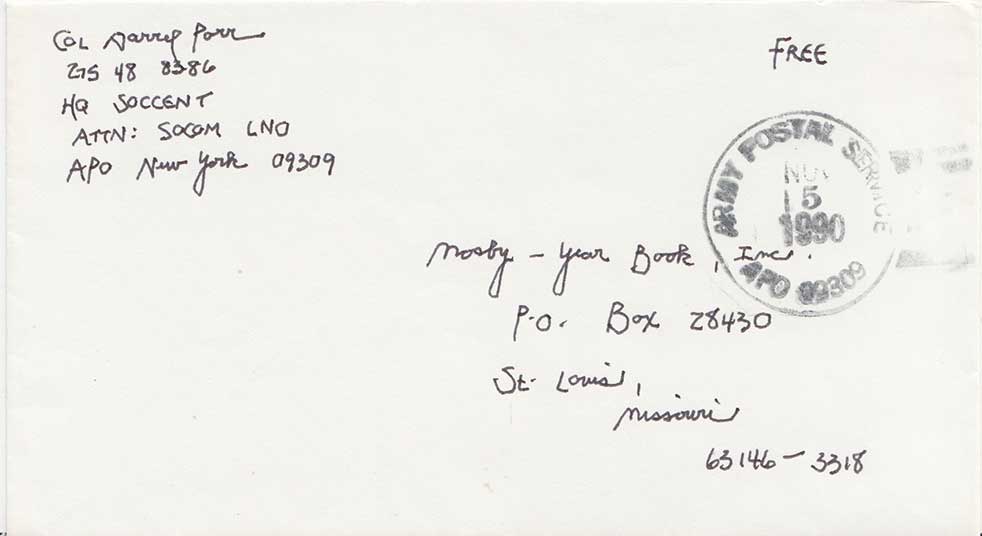 COL Darryl Porr
275 48 8386
HQ SOCCENT
ATTN: SOCOM LNO
APO New York 09309
FREE
ARMY POSTAL SERVICE
NOV
15
1990
APO 09309
Mosby - Year Book, Inc.
P.O. Box 28430
St. Louis,
Missouri
63146-3318